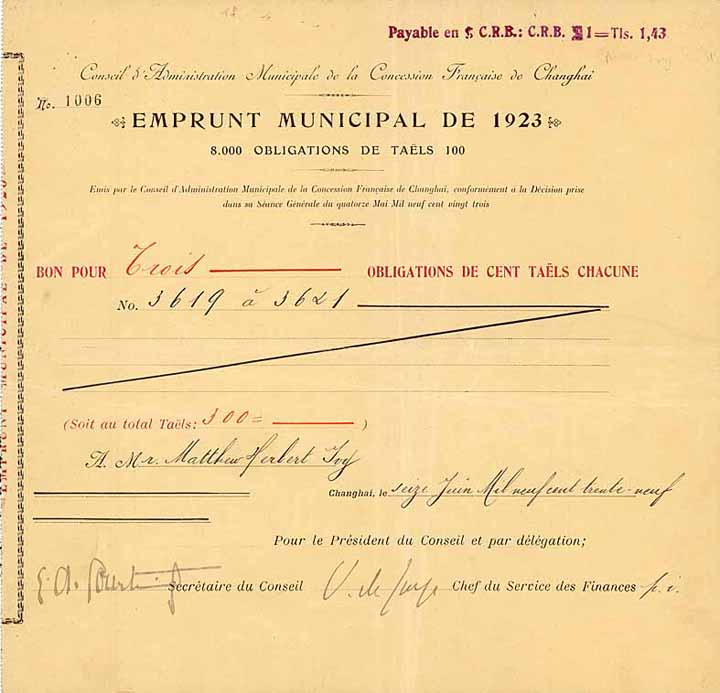 Payable en $ C.R.B.: C.R.B. $1=Tls. 1,43
Conseil d'Administration Municipale de la Concession Française de Changhai
No. 1006
EMPRUNT MUNICIPAL DE 1923
8.000 OBLIGATIONS DE TAËLS 100
Emis par le Conseil d'Administration Municipale de la Concession Française de Changhai, conformément à la Décision prise
dans sa Séance Générale du quatorze Mai Mil neuf cent vingt trois
BON POUR Trois OBLIGATIONS DE CENT TAËLS CHACUNE
No. 3619 à 3621
(Soit au total Taëls: 300= )
A. Mr. Matthew Herbert Ivy
Changhai, le seize Juin Mil neuf cent trente-neuf
Pour le Président du Conseil et par délégation;
Secrétaire du Conseil
Chef du Service des Finances p. i.
EMPRUNT MUNICIPAL DE 1923